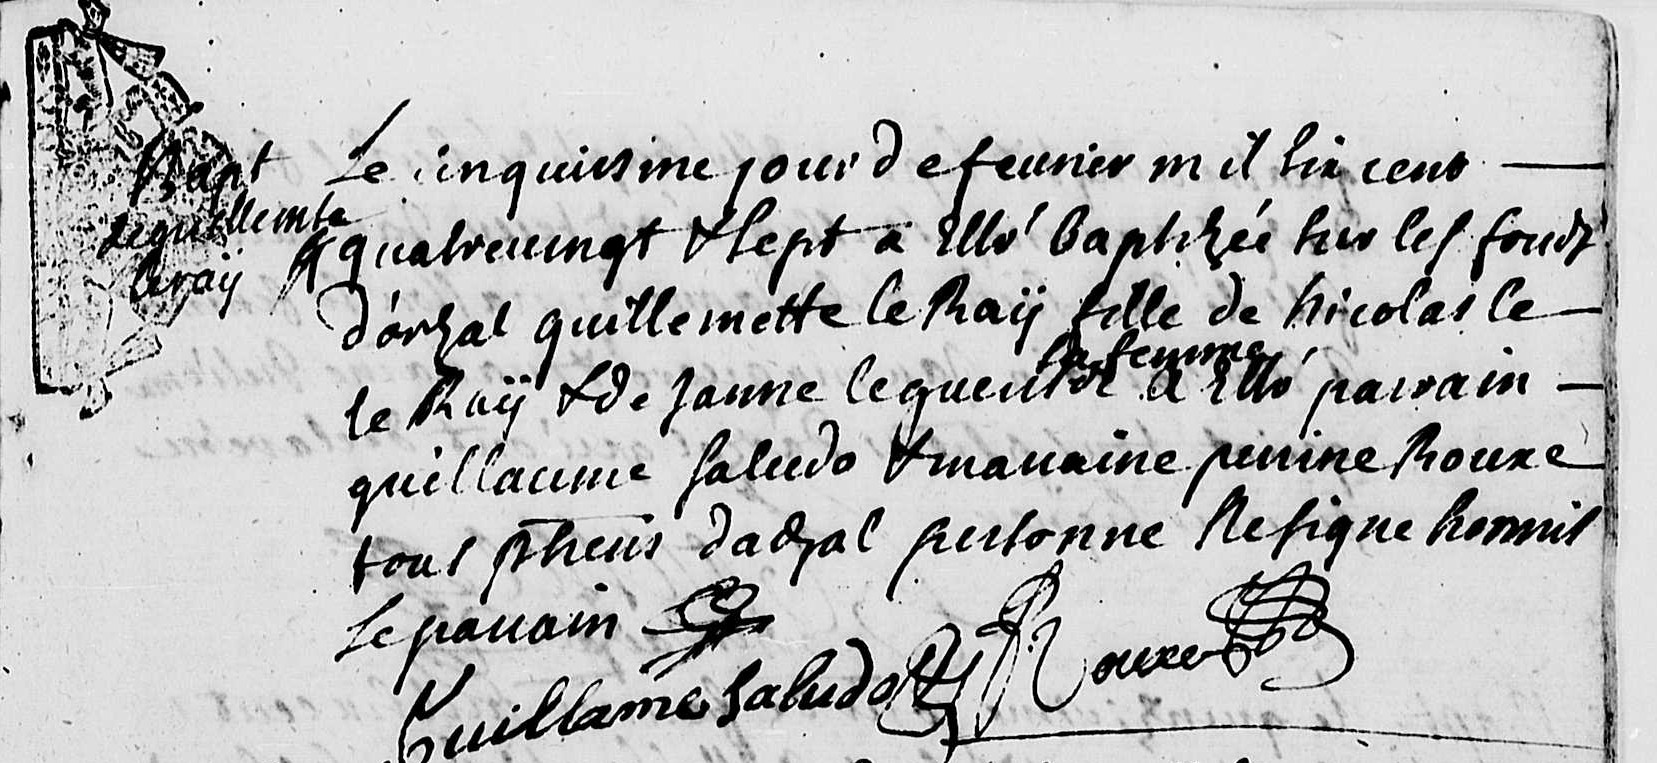 Bapt
de guillemte
le raÿ
Le cinquiesme jour de feurier mil six cens
quatreuingt & sept a esté baptizée sur les fonds
d'orzal guillemette le Raÿ fille de Nicolas le
sa femme
le Raÿ & de Janne le guen a esté parrain
guillaume saludo & maraine perine Rouxe
tous pñts d'adzal personne Ne signe hormis
le parrain
Guillame saludo Rouxe